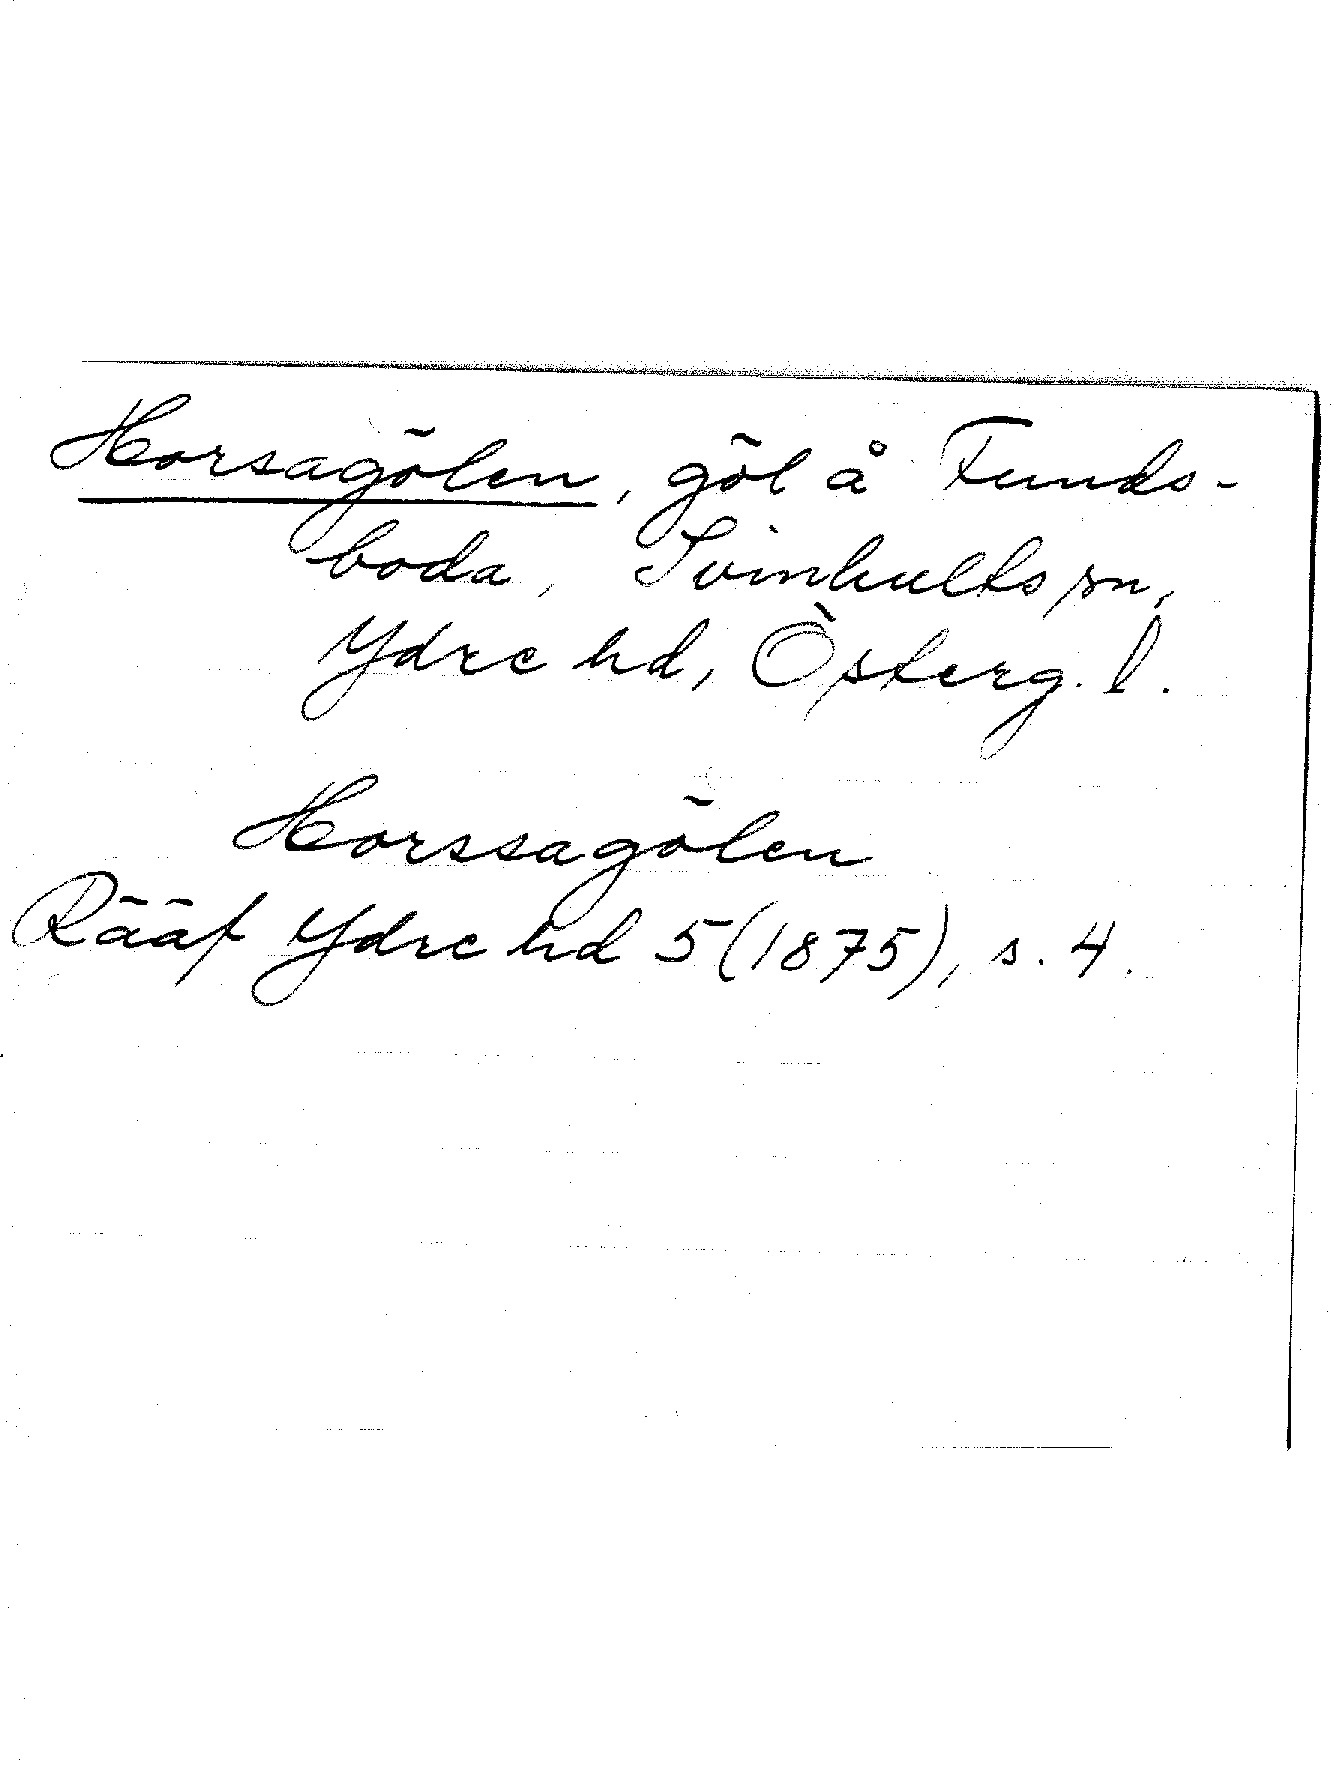 Horsagölen, göl å Funds-
boda, Svinhults sn,
Ydre hd, Österg. l.
Horssagölen
Rääf Ydre hd 5 (1875), s. 4.